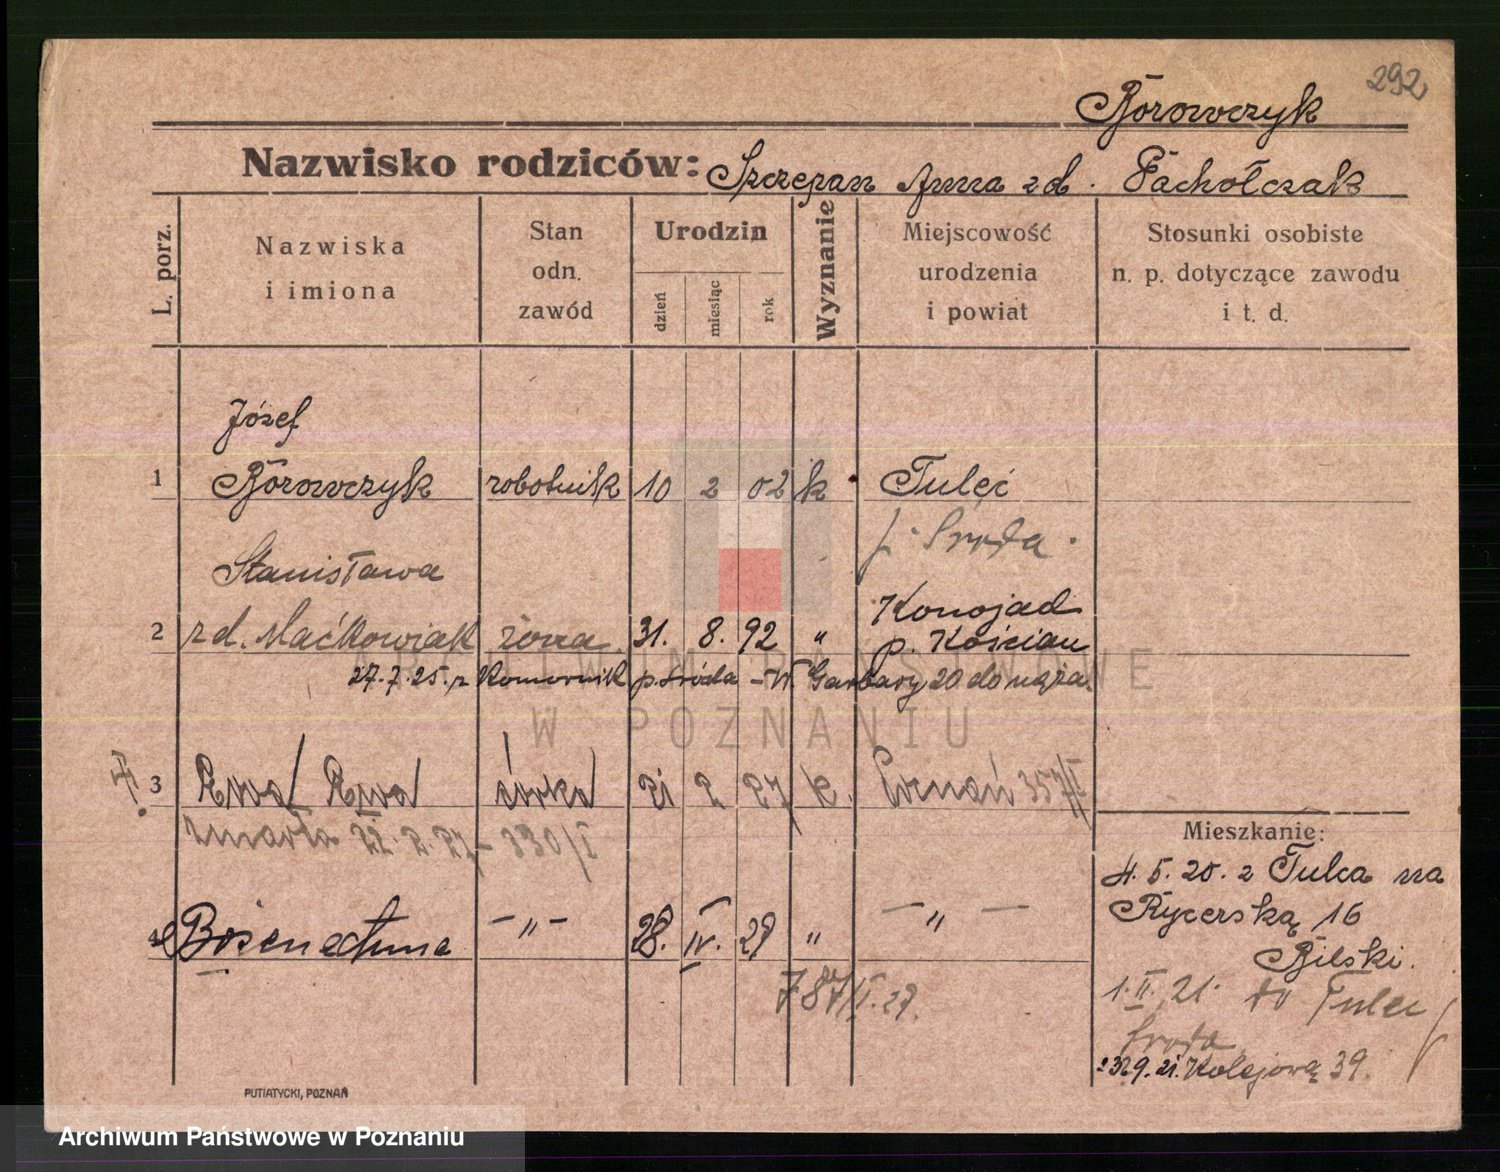 292
Borowczyk
Nazwisko rodziców: Szczepan Anna zd. Pachołczak
L. porz.
Nazwiska i imiona
Stan odn. zawód
Urodzin
dzień
miesiąc
rok
Wyznanie
Miejscowość urodzenia i powiat
Stosunki osobiste n. p. dotyczące zawodu i t. d.
Józef
1 Borowczyk robotnik 10 2 02 k Tulec
p. Środa
Stanisława Konojad
2 zd. Maćkowiak żona 31. 8. 92 " p. Kościan
27.7.25. z Komornik p. Środa - W. Garbary 20 do męża
3 Ewa Ewa córka 21 2 27 k. Poznań 357/I
zmarła 22. 2. 27 - 330/I
4 Bożena Anna - " - 28. IV. 29 " - " -
787/II. 29.
Mieszkanie:
4. 5. 20. z Tulca na
Rycerską 16
Bilski.
1. II. 21. do Tulec
Środa
29. 21. Kolejową 39.
PUTIATYCKI, POZNAŃ
ARCHIWUM PAŃSTWOWE
W POZNANIU
Archiwum Państwowe w Poznaniu